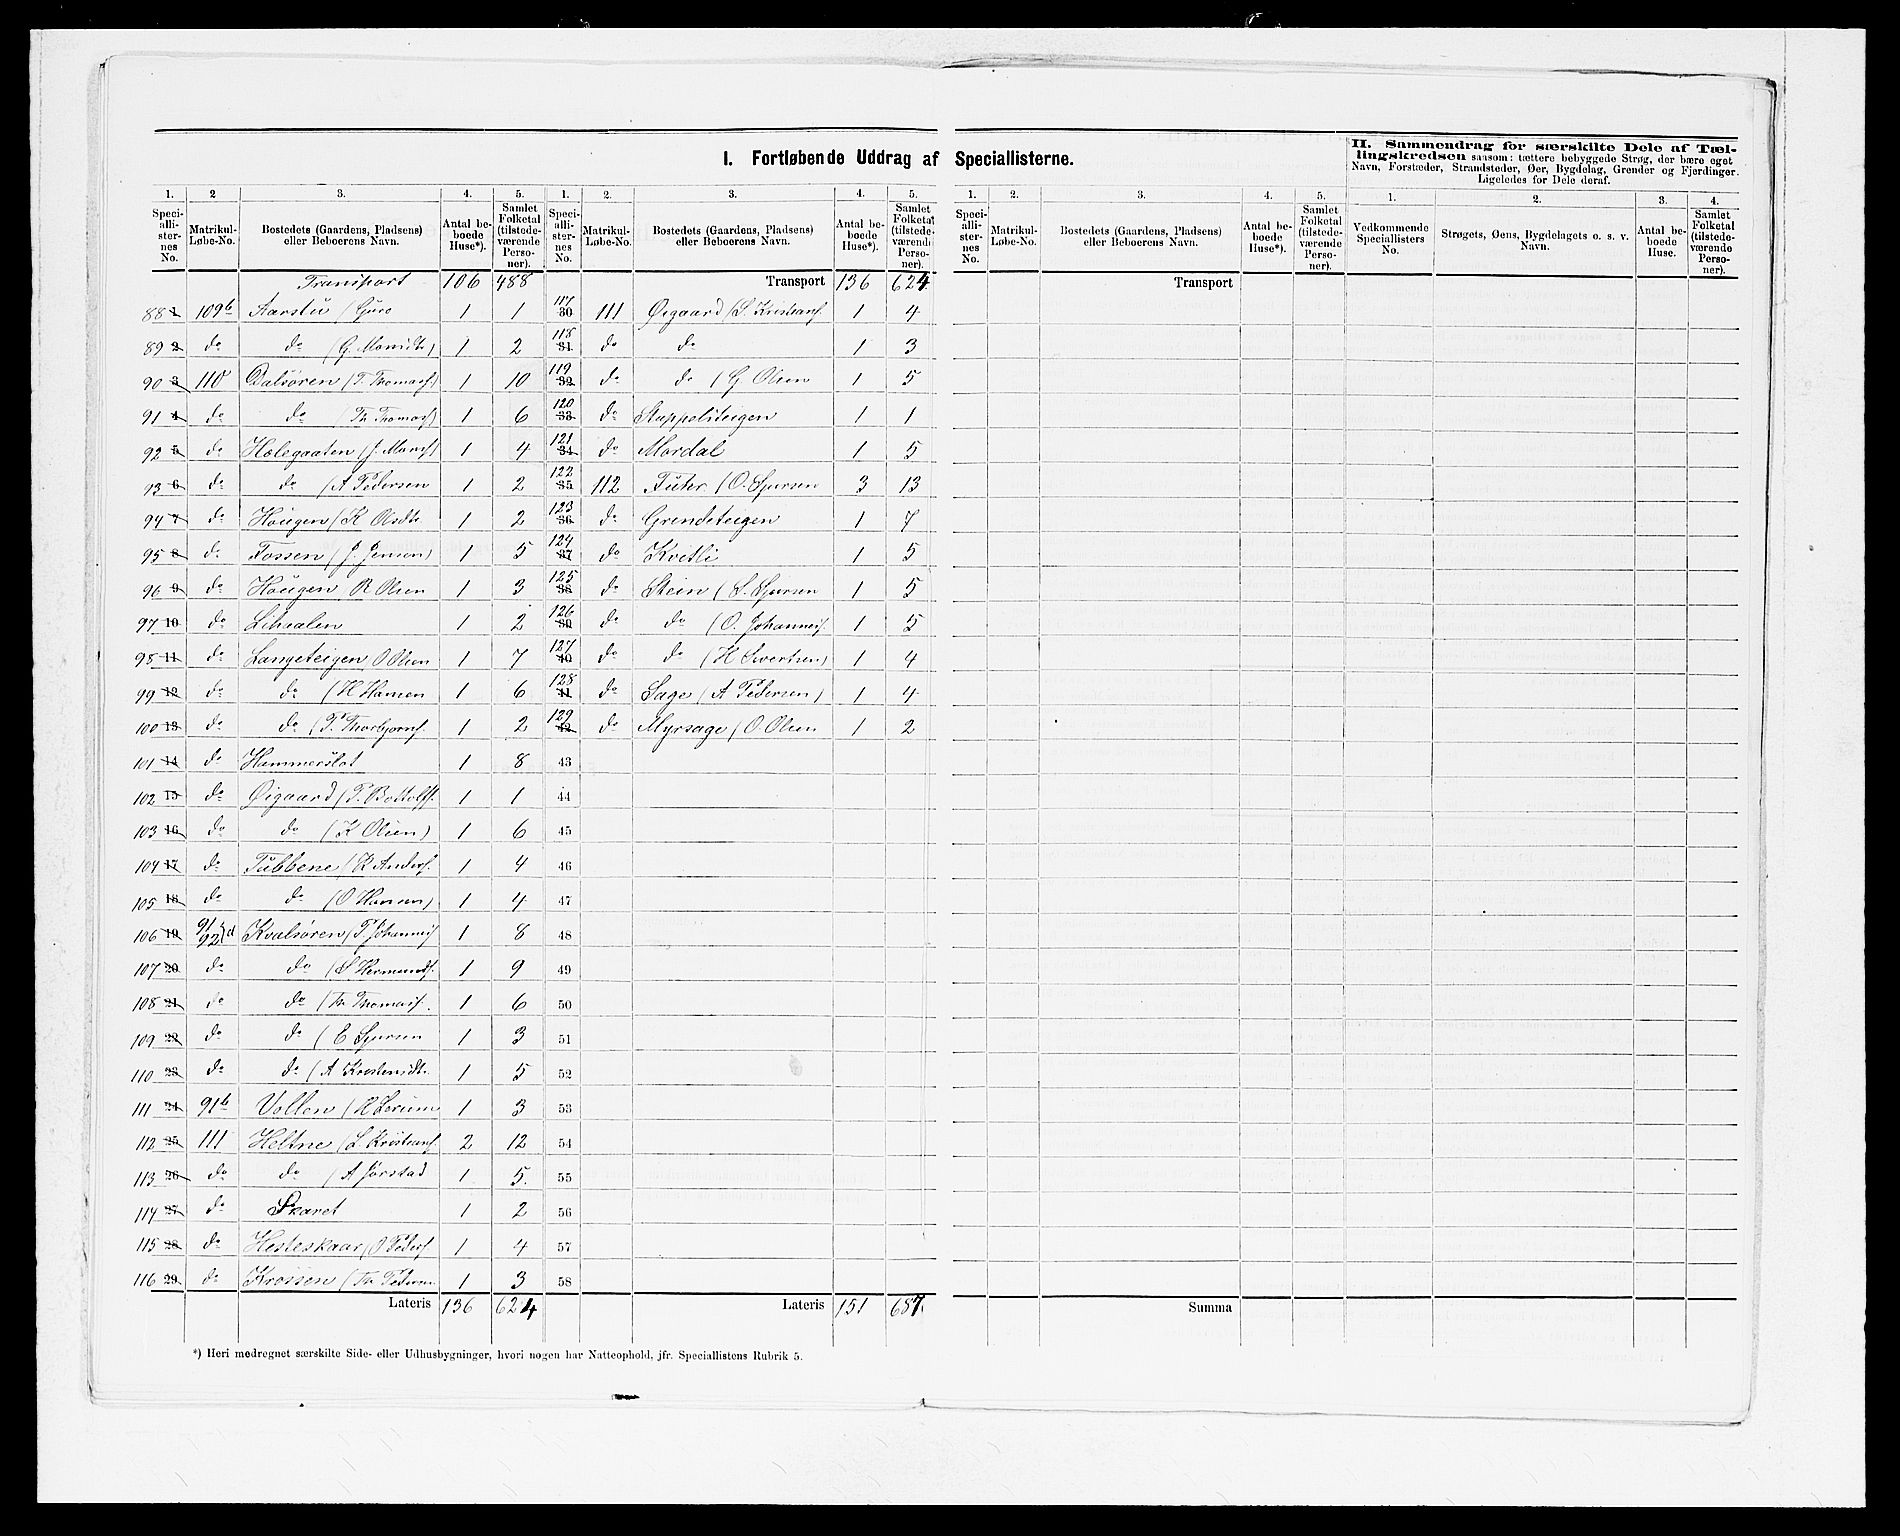 I. Fortløbende Uddrag af Speciallisterne.
II. Sammendrag for særskilte Dele af Tællingskredsen saasom: tættere bebyggede Strøg, der bære eget Navn, Forstæder, Strandsteder, Øer, Bygdelag, Grender og Fjerdinger. Ligeledes for Dele deraf.
1. 2 3. 4. 5. 1. 2. 3. 4. 5. 1. 2. 3. 4. 5. 1. 2. 3. 4.
Speciallisternes No. Matrikul-Løbe-No. Bostedets (Gaardens, Pladsens) eller Beboerens Navn. Antal beboede Huse*). Samlet Folketal (tilstedeværende Personer).
Speciallisternes No. Matrikul-Løbe-No. Bostedets (Gaardens, Pladsens) eller Beboerens Navn. Antal beboede Huse*). Samlet Folketal (tilstedeværende Personer).
Speciallisternes No. Matrikul-Løbe-No. Bostedets (Gaardens, Pladsens) eller Beboerens Navn. Antal beboede Huse*). Samlet Folketal (tilstedeværende Personer).
Vedkommende Speciallisters No. Strøgets, Øens, Bygdelagets o. s. v. Navn. Antal beboede Huse. Samlet Folketal (tilstedeværende Personer).
Transport 106 488
88 1 109b Aarstu (Guro 1 1
89 2 do do (G. 1 2
90 3 110 Dalsøren (T. Thomass) 1 10
91 4 do do (Th Thomass) 1 6
92 5 do Holegaaten (J. Monss) 1 4
93 6 do do (A Pedersen 1 2
94 7 do Haugen (K Olsdtr 1 2
95 8 do Fossen (J. Jensen) 1 5
96 9 do Haugen R Olsen 1 3
97 10 do 1 2
98 11 do Langeteigen O Olsen 1 7
99 12 do do (H Hansen 1 6
100 13 do do (T. Thorbjørns. 1 2
101 14 do Hammerslat 1 8
102 15 do Øigaard (T. Bottolfs. 1 1
103 16 do do (K Olsen) 1 6
104 17 do Tubbene (K Anders. 1 4
105 18 do do (O Hansen) 1 4
106 19 91 92 d Kvalsøren (T Johannes 1 8
107 20 do do (S Hermunds. 1 9
108 21 do do (Th Thomass. 1 6
109 22 do do (E Sjursen 1 3
110 23 do do (A 1 5
111 24 91b Vollen (H Lerum 1 3
112 25 111 Heltne (L. Kristians. 2 12
113 26 do do (A Jørstad 1 5.
114 27 do Skaret 1 2
115 28 do Hesteskaar (O Peders 1 4
116 29 do Krossen (Th Pedersen 1 3
Lateris 136 624
Transport 136 624
117 30 111 Øigaard (S. Kristians. 1 4
118 31 do do 1 3
119 32 do do (G Olsen 1 5
120 33 do Stuppeliteigen 1 1
121 34 do Mordal 1 5
122 35 112 (O. Sjursen 3 13
123 36 do Grendeteigen 1 7
124 37 do Kvitli 1 5
125 38 do Stein (S. Sjursen 1 5
126 39 do do (O. Johanness. 1 5
127 40 do do (H Sivertsen) 1 4
128 41 do Sage (A Pedersen) 1 4
129 42 do Myrsage (O. Olsen 1 2
43
44
45
46
47
48
49
50
51
52
53
54
55
56
57
58
Lateris 151 687.
Transport
Summa
*) Heri medregnet særskilte Side- eller Udhusbygninger, hvori nogen har Natteophold, jfr. Speciallistens Rubrik 5.